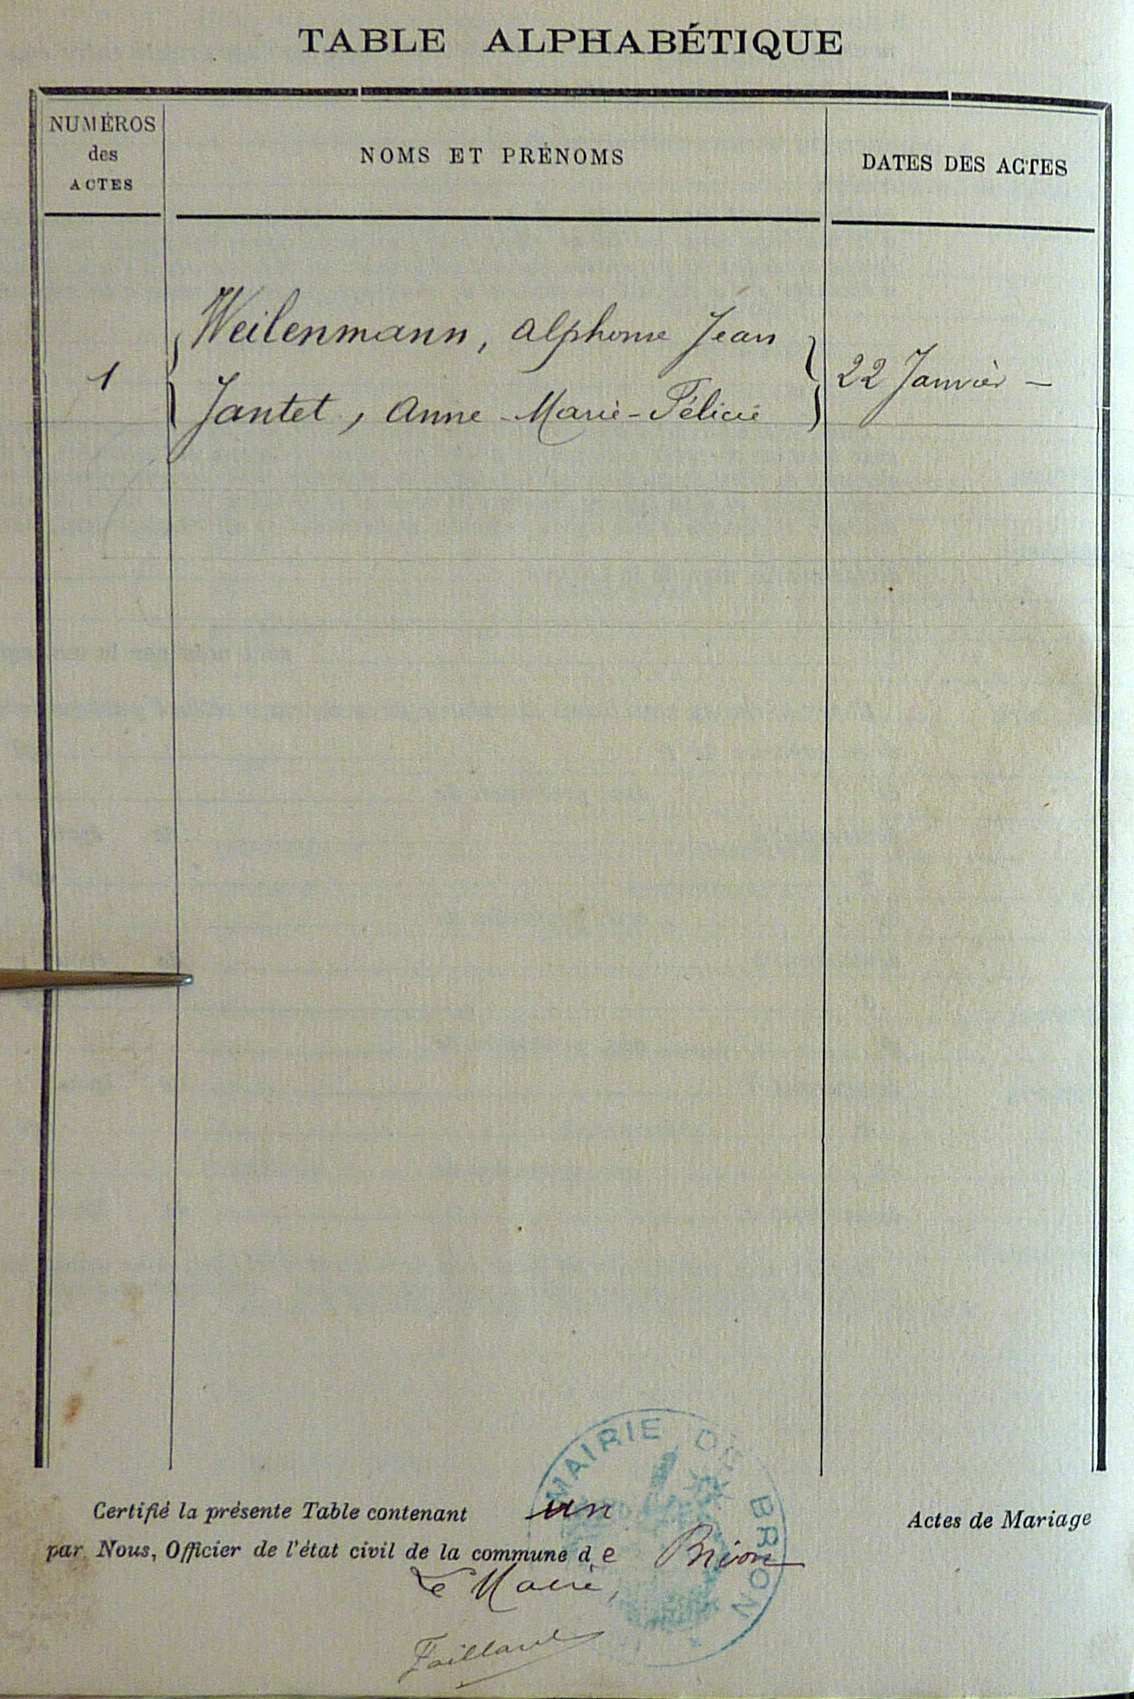 TABLE ALPHABÉTIQUE
NUMÉROS
des
ACTES
NOMS ET PRÉNOMS
DATES DES ACTES
Weilenmann, Alphonse Jean
1
22 Janvier -
Jantet, Anne-Marie-Félicie
Certifié la présente Table contenant un Actes de Mariage
par Nous, Officier de l'état civil de la commune de Brion
Le Maire,
MAIRIE DE BRION